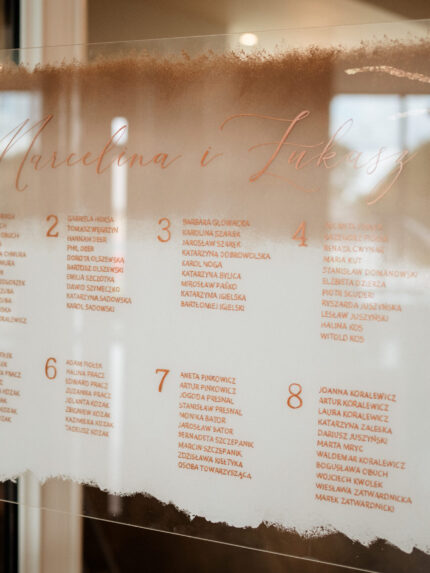 Marcelina i Łukasz
2
GABRIELA HUKSA
TOMASZ WĘGRZYN
HANNAH DEER
PHIL DEER
DOROTA OLSZEWSKA
BARTOSZ OLSZEWSKI
EMILIA SZCZOTKA
DAWID SZYMECZKO
KATARZYNA SADOWSKA
KAROL SADOWSKI
3
BARBARA GŁOWACKA
KAROLINA SZAREK
JAROSŁAW SZAREK
KATARZYNA DOBROWOLSKA
KAROL NOGA
KATARZYNA BYLICA
MIROSŁAW PAŚKO
KATARZYNA IGIELSKA
BARTŁOMIEJ IGIELSKI
4
RENATA GWYNAR
MARIA KUT
STANISŁAW DOMANOWSKI
ELŻBIETA DZIERŻA
PIOTR SCUDERI
RYSZARDA JUSZYŃSKA
LESŁAW JUSZYŃSKI
HALINA KOS
WITOLD KOS
6
ADAM FIOŁEK
HALINA PRACZ
EDWARD PRACZ
ZUZANNA PRACZ
JOLANTA KOZAK
ZBIGNIEW KOZAK
KAZIMIERA KOZAK
TADEUSZ KOZAK
7
ANETA PINKOWICZ
ARTUR PINKOWICZ
JAGODA PRESNAL
STANISŁAW PRESNAL
MONIKA BATOR
JAROSŁAW BATOR
BERNADETA SZCZEPANIK
MARCIN SZCZEPANIK
ZDZISŁAWA KIEŁTYKA
OSOBA TOWARZYSZĄCA
8
JOANNA KORALEWICZ
ARTUR KORALEWICZ
LAURA KORALEWICZ
KATARZYNA ZALESKA
DARIUSZ JUSZYŃSKI
MARTA MRYC
WALDEMAR KORALEWICZ
BOGUSŁAWA OBUCH
WOJCIECH KWOLEK
WIESŁAWA ZATWARDNICKA
MAREK ZATWARDNICKI